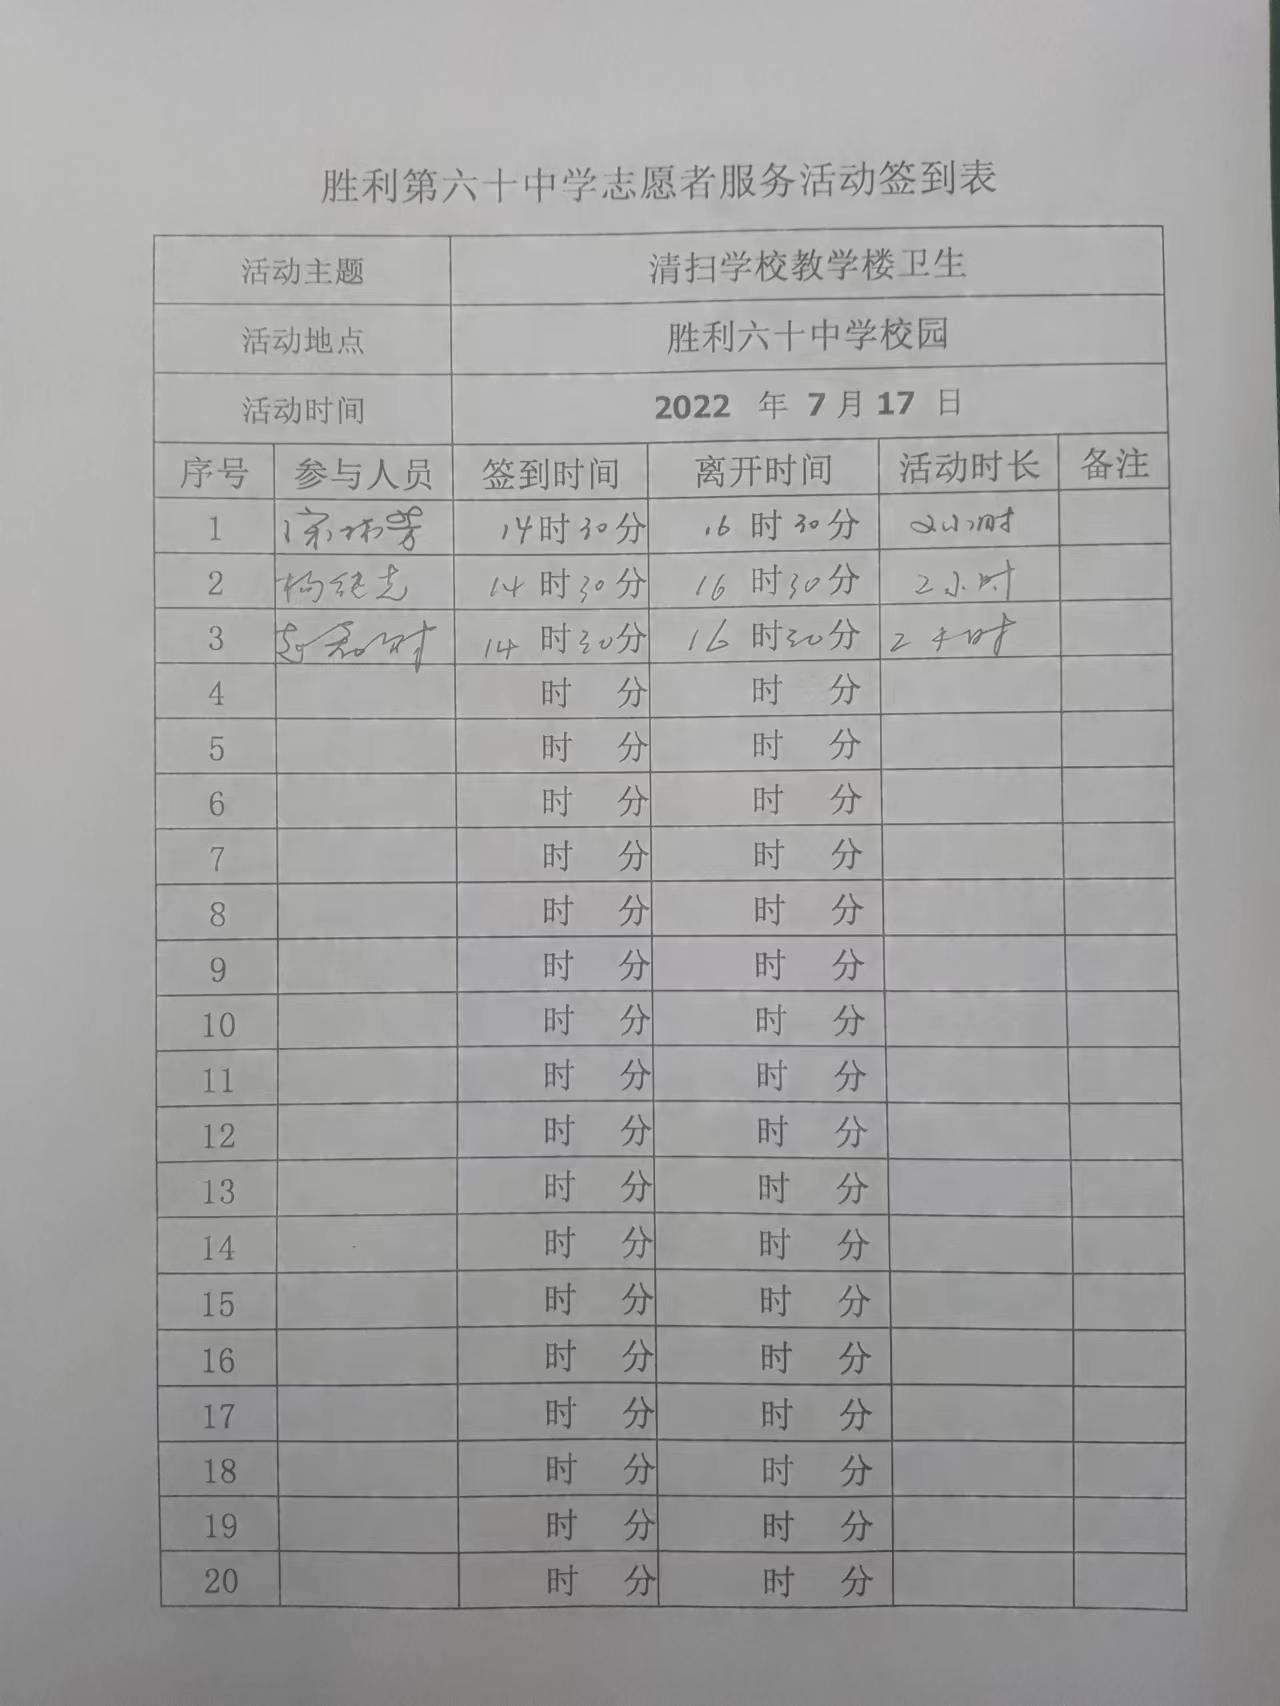 胜利第六十中学志愿者服务活动签到表
活动主题 清扫学校教学楼卫生
活动地点 胜利六十中学校园
活动时间 2022 年 7月17 日
序号 参与人员 签到时间 离开时间 活动时长 备注
1 14时30分 16时30分 2小时
2 杨纪志 14时30分 16时30分 2小时
3 14时30分 16时30分 2小时
4 时 分 时 分
5 时 分 时 分
6 时 分 时 分
7 时 分 时 分
8 时 分 时 分
9 时 分 时 分
10 时 分 时 分
11 时 分 时 分
12 时 分 时 分
13 时 分 时 分
14 时 分 时 分
15 时 分 时 分
16 时 分 时 分
17 时 分 时 分
18 时 分 时 分
19 时 分 时 分
20 时 分 时 分